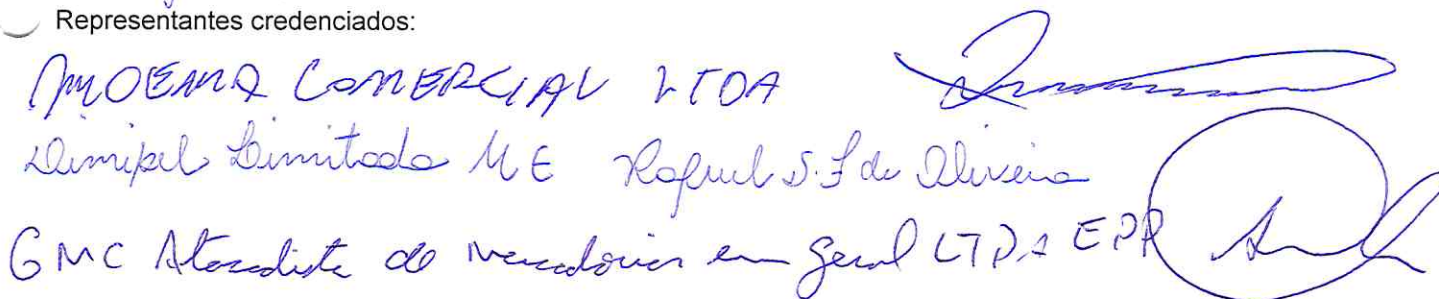 Representantes credenciados:
MOEMA COMERCIAL LTDA
Dimipel Limitada ME Rafael S. F de Oliveira
GMC Atacadista de mercadorias em geral LTDA EPP